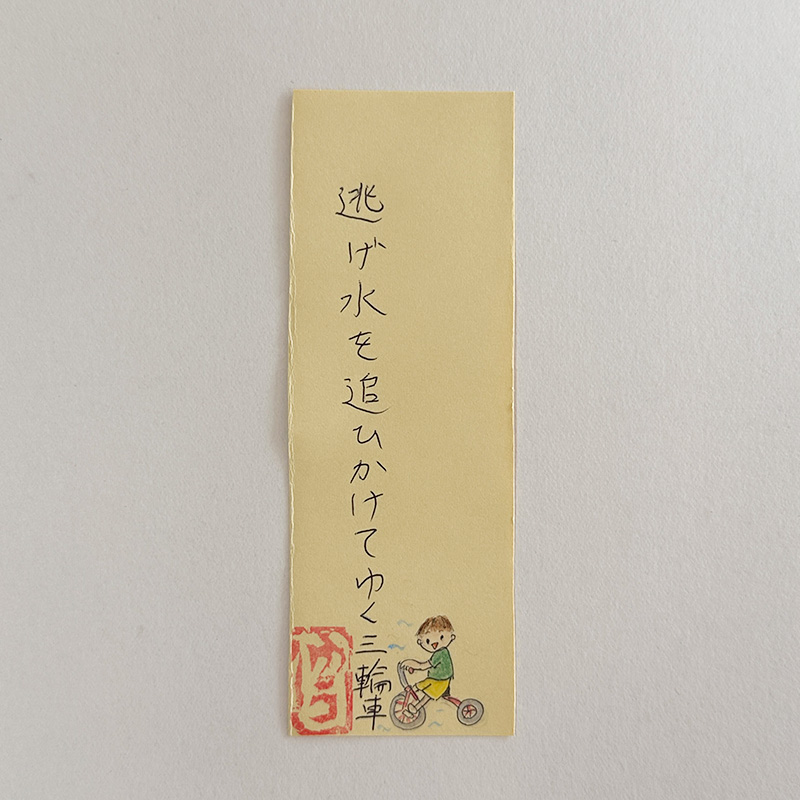 逃げ水を追ひかけてゆく三輪車